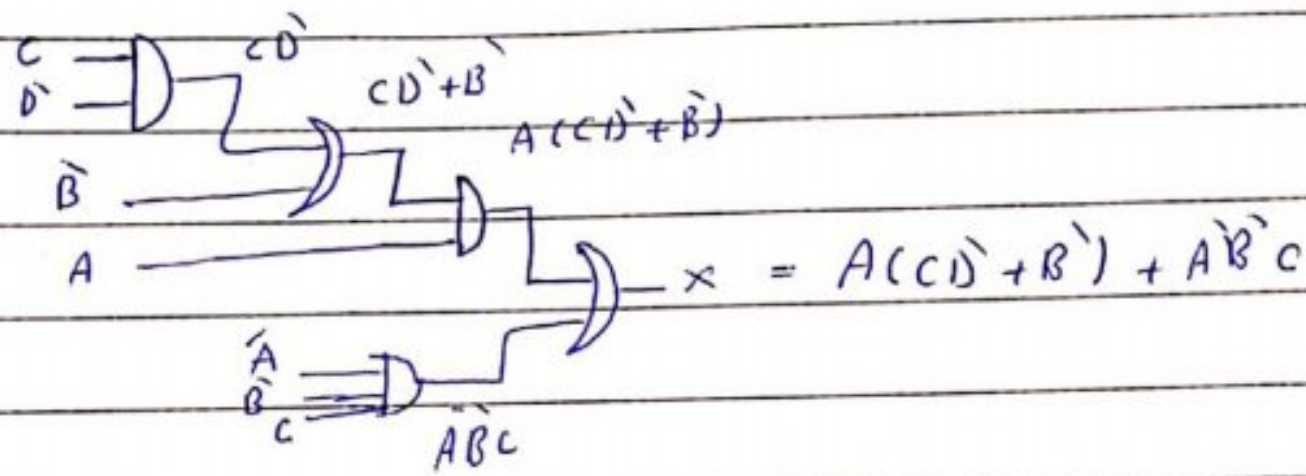 C
D`
CD`
CD`+B`
B`
A(CD`+B`)
A
x = A(CD`+B`) + A`B`C
A`
B`
C
A`B`C